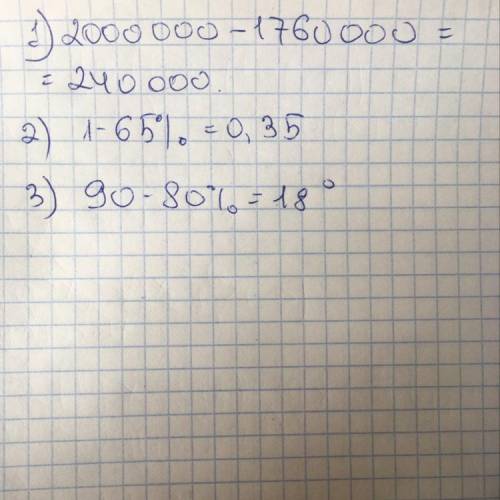 1) 2000 000 - 1760 000 =
= 240 000.
2) 1 - 65% = 0,35
3) 90 - 80% = 18°